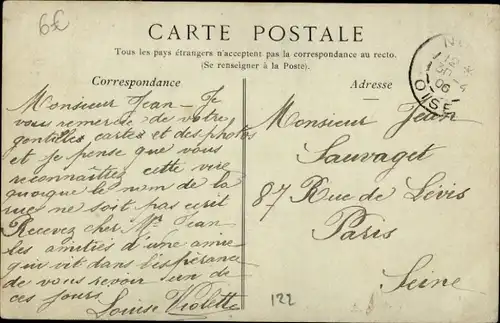 6€
CARTE POSTALE
Tous les pays étrangers n'acceptent pas la correspondance au recto.
(Se renseigner à la Poste).
Correspondance
Monsieur Jean – Je
vous remercie de votre
gentilles cartes et des photos
et je pense que vous
reconnaitrez cette vue
quoique le nom de la
rue ne soit pas ecrit
Recevez cher Mr Jean
les amitiés d'une amie
qui vit dans l'espérance
de vous revoir un de
ces jours
Louise Violette
Adresse
Monsieur Jean
Sauvaget
87 Rue de Lévis
Paris
Seine
12
06
OISE
122